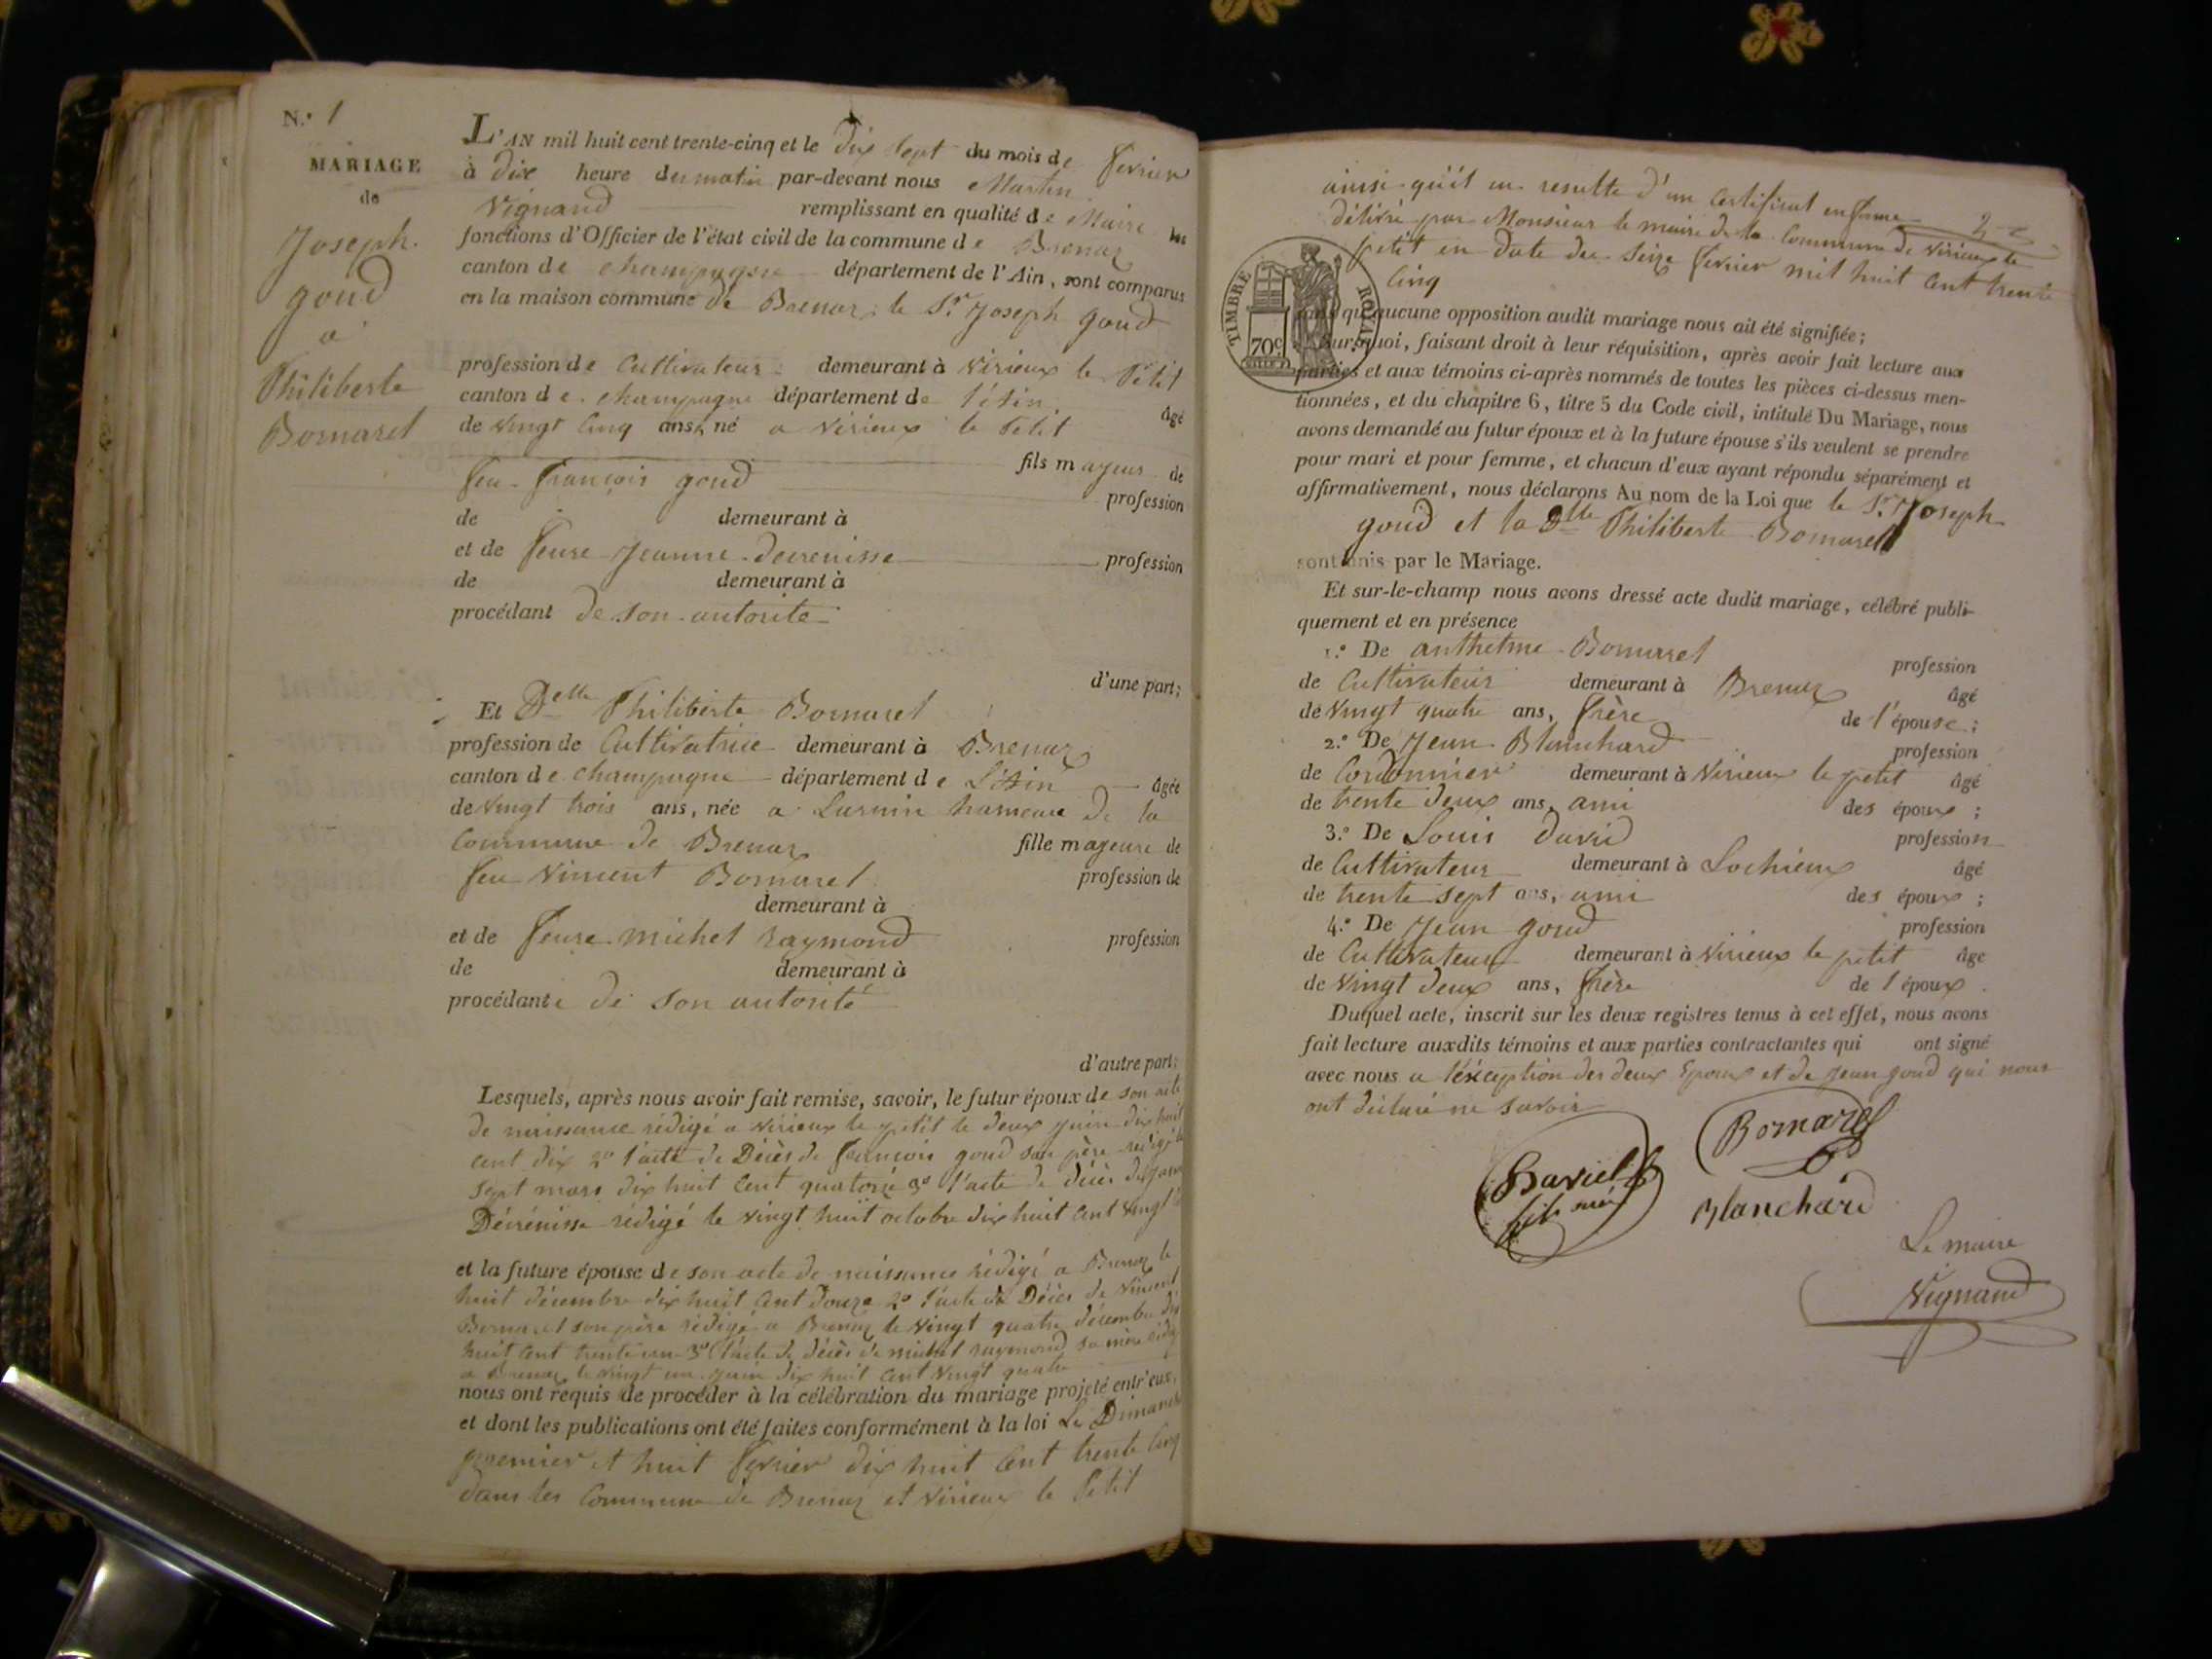 N.º 1
MARIAGE
de
Joseph
goud
a
Philiberte
Bornarel
L'AN mil huit cent trente-cinq et le dix sept du mois de fevrier
à dix heure du matin par-devant nous Martin
Vignand remplissant en qualité de Maire les
fonctions d'Officier de l'état civil de la commune de Brenaz
canton de champagne département de l'Ain, sont comparus
en la maison commune de Brenaz le Sr Joseph goud
profession de Cultivateur demeurant à Virieux le Petit
canton de champagne département de l'Ain âgé
de vingt cinq ans, né a Virieux le Petit
fils majeur de
feu françois goud profession
de demeurant à
et de feue Jeanne Decrenisse profession
de demeurant à
procédant de son autorité
d'une part;
Et Delle Philiberte Bornarel
profession de Cultivatrice demeurant à Brenaz
canton de champagne département de L'Ain âgée
de vingt trois ans, née a hameau de la
Commune de Brenaz fille majeure de
feu Vincent Bornarel profession de
demeurant à
et de feue michel raymond profession
de demeurant à
procédante de son autorité
d'autre part;
Lesquels, après nous avoir fait remise, savoir, le futur époux de son acte
de naissance rédigé a Virieux le petit le deux juin dix huit
cent dix 2º l'acte de Décès de françois goud son père rédigé le
sept mars dix huit cent quatorze 3º l'acte de décès de
rédigé le vingt huit octobre dix huit cent vingt
et la future épouse de son acte de naissance rédigé a Brenaz le
huit décembre dix huit cent douze 2º l'acte de Décès de Vincent
Bornarel son père rédigé a Brenaz le vingt quatre décembre dix
huit cent trente un 3º l'acte de décès de michel raymond sa mère rédigé
a Brenaz le vingt un juin dix huit cent vingt quatre
nous ont requis de procéder à la célébration du mariage projeté entr'eux,
et dont les publications ont été faites conformément à la loi Le Dimanche
premier et huit fevrier dix huit cent trente cinq
dans les Commune de Brenaz et Virieux le Petit
ainsi qu'il en resulte d'un Certificat en forme
délivré par Monsieur le maire de la Commune de Virieux le
petit en date du seize fevrier mil huit cent trente
cinq
TIMBRE ROYAL
70c
sans qu'aucune opposition audit mariage nous ait été signifiée;
Sur quoi, faisant droit à leur réquisition, après avoir fait lecture aux
parties et aux témoins ci-après nommés de toutes les pièces ci-dessus men-
tionnées, et du chapitre 6, titre 5 du Code civil, intitulé Du Mariage, nous
avons demandé au futur époux et à la future épouse s'ils veulent se prendre
pour mari et pour femme, et chacun d'eux ayant répondu séparément et
affirmativement, nous déclarons Au nom de la Loi que le Sr Joseph
goud et la Dlle Philiberte Bornarel
sont unis par le Mariage.
Et sur-le-champ nous avons dressé acte dudit mariage, célébré publi-
quement et en présence
1.º De anthelme Bornarel profession
de Cultivateur demeurant à Brenaz âgé
de vingt quatre ans, frère de l'épouse;
2.º De Jean Blanchard profession
de Cordonnier demeurant à Virieux le petit âgé
de trente deux ans, ami des époux;
3.º De Louis david profession
de Cultivateur demeurant à Lochieux âgé
de trente sept ans, ami des époux;
4.º De Jean goud profession
de Cultivateur demeurant à Virieux le petit âge
de vingt deux ans, frère de l'époux.
Duquel acte, inscrit sur les deux registres tenus à cet effet, nous avons
fait lecture auxdits témoins et aux parties contractantes qui ont signé
avec nous a l'éxception des deux Epoux et de Jean goud qui nous
ont déclaré ne savoir
Bornarel
Blanchard
Le maire
Vignand